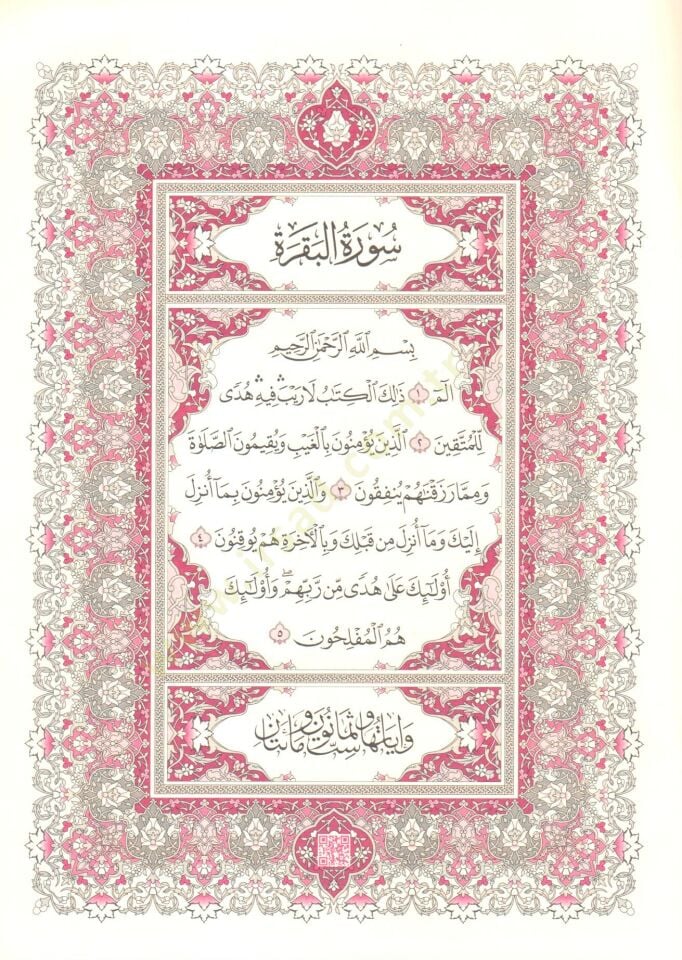 سُورَةُ البَقَرَةِ
بِسْمِ اللّٰهِ الرَّحْمٰنِ الرَّحِيمِ
الٓمٓ ۝١ ذٰلِكَ الْكِتَابُ لَا رَيْبَۛ فِيهِۛ هُدًى
لِلْمُتَّقِينَ ۝٢ اَلَّذِينَ يُؤْمِنُونَ بِالْغَيْبِ وَيُقِيمُونَ الصَّلٰوةَ
وَمِمَّا رَزَقْنَاهُمْ يُنْفِقُونَ ۝٣ وَالَّذِينَ يُؤْمِنُونَ بِمَٓا أُنْزِلَ
إِلَيْكَ وَمَٓا أُنْزِلَ مِنْ قَبْلِكَ وَبِالْاٰخِرَةِ هُمْ يُوقِنُونَ ۝٤
أُو۬لٰٓئِكَ عَلٰى هُدًى مِنْ رَبِّهِمْۗ وَأُو۬لٰٓئِكَ
هُمُ الْمُفْلِحُونَ ۝٥
وَاٰيَاتُهَا مِائَتَانِ وَسِتٌّ وَثَمَانُونَ